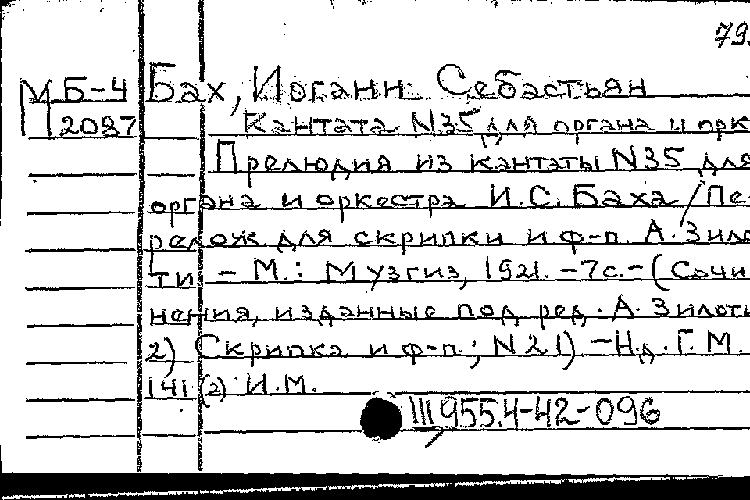 79.
М Б-4 Бах, Иоганн Себастьян
2087 Кантата N35 для органа и орк
Прелюдия из кантаты N35 для
органа и оркестра И.С. Баха / Пе-
релож для скрипки и ф-п. А. Зило
ти - М.: Музгиз, 1921. - 7с. - (Сочи
нения, изданные под ред. А. Зилоти
2) Скрипка и ф-п.; N21) - Н.д. Г.М.
141 (2) И.М.
III 955.4-42-096